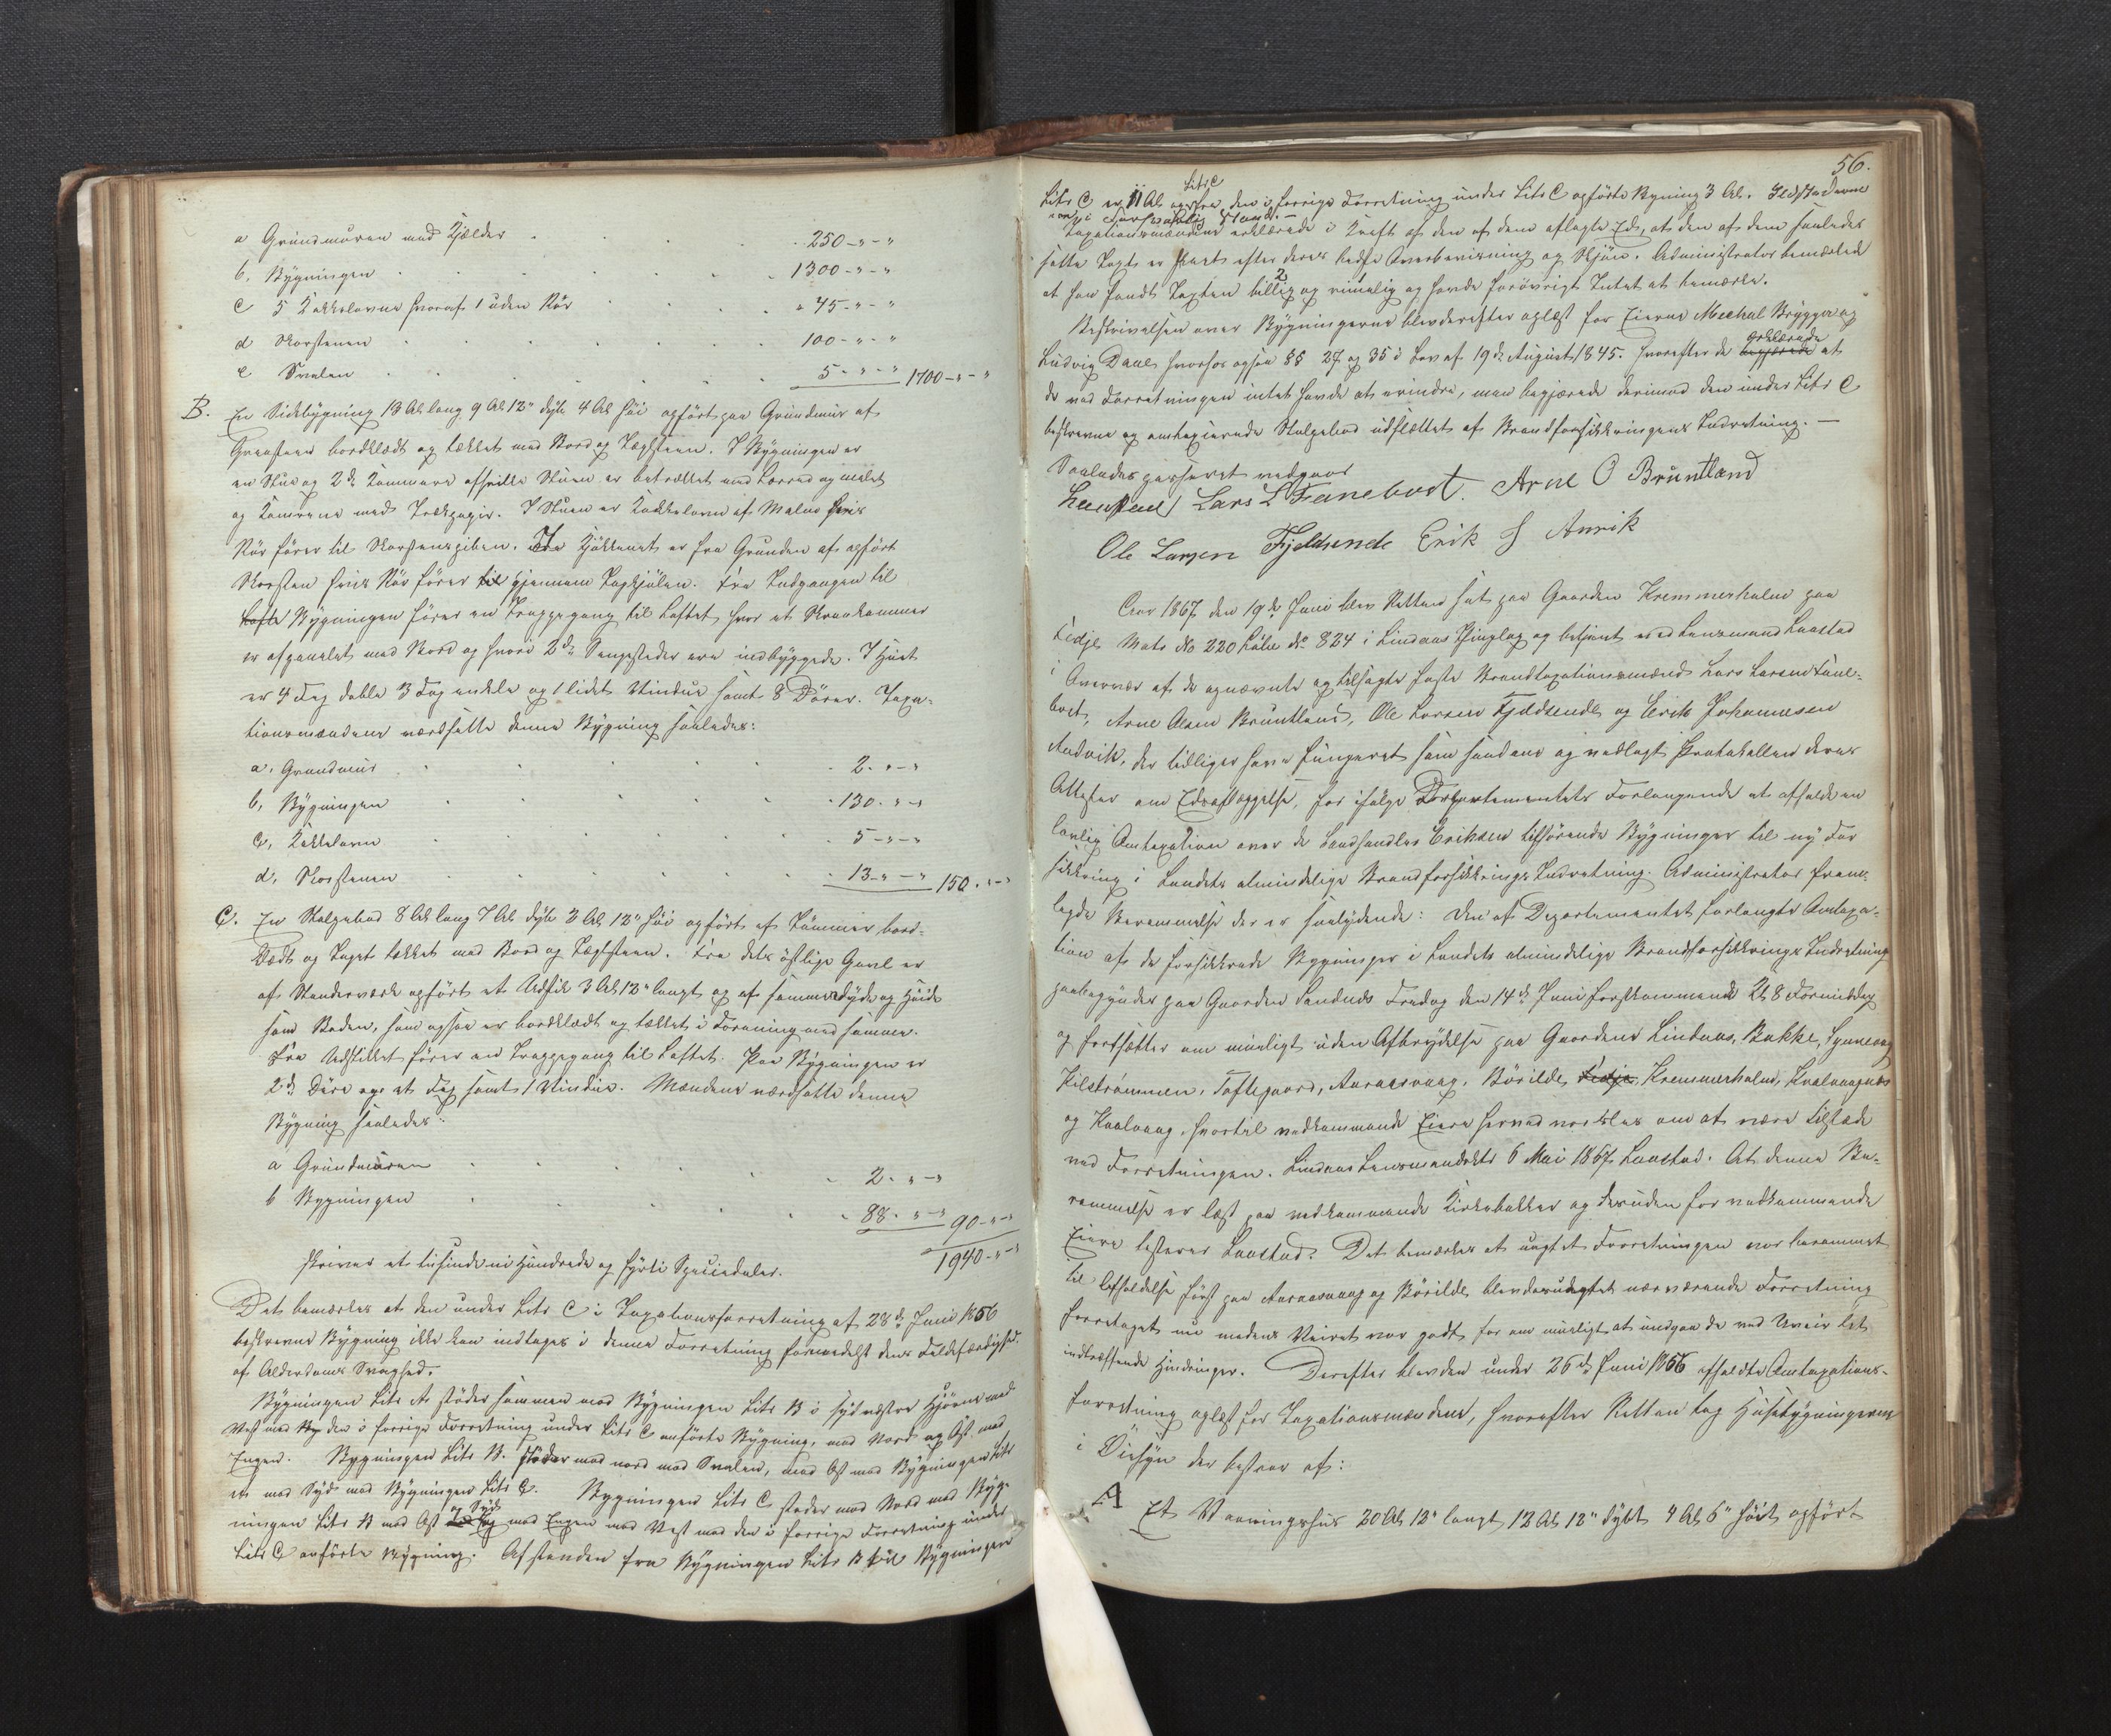 a Grundmuren med Kjælder . . . . 250 - " - "
b, Bygningen . . . . . . 1300 - " - "
c 5 Kakkelovne hvoraf 1 uden Rör . . . " 45 - " - "
d Skorstenen . . . . . . 100 - " - "
e Svalen . . . . . . 5 - " - " 1700 - " - "
B. En Sidebygning 13 Al lang 9 Al 12" dyb 4 Al høi opført paa Grundmur af
Graasteen bordklædt og tækket med Bord og Tagsteen. I Bygningen er
en Stue og 2de Kammere afskilte Stuen er betrækket med Lærred og malet
og Kamrene med Trækpapir. I Stuen er Kakkelovn af Malm hvis
Rör fører til Skorstenspiben. I Kjøkkenet er fra Grunden af opført
Skorsten hvis Rör fører til gjennem Tagkjølen. Fra Indgangen til
Bygningen fører en Trappegang til Loftet hvor et Skraakammer
er afpanelet med Bord og hvori 2de Sengesteder ere indbyggede. I Huset
er 4 Fag doble 3 Fag enkle og 1 lidet Vindue samt 8 Dører. Taxa-
tionsmændene værdsatte denne Bygning saaledes:
a, Grundmur . . . . . . 2 - " - "
b, Bygningen . . . . . . 130 - " - "
c, Kakkelovn . . . . . . 5 - " - "
d, Skorstenen . . . . . . 13 - " - " 150 - " - "
C. En Stolpebod 8 Al lang 7 Al dyb 3 Al 12" høi opført af Tømmer bord-
klædt og Taget tækket med Bord og Tagsteen. Fra dets østlige Gavl er
af Standerværk opført et Udskik 3 Al 12" langt og af samme Dybde og Høide
som Boden, som ogsaa er bordklædt og tækket i Forening med samme.
Fra Udskikket fører en Trappegang til Loftet. Paa Bygningen er
2de Døre og et Fag samt 1 Vindue. Mændene værdsatte denne
Bygning saaledes:
a Grundmuren . . . . . 2 - " - "
b Bygningen . . . . . 88 - " - " 90 - " - "
1940 - " - "
skriver et tusinde ni Hundrede og fyrti Speciedaler.
Det bemærkes at den under Litr C i Taxationsforretning af 28de Juni 1856
beskrevne Bygning ikke kan indtages i denne Forretning formedelst dens Faldefærdighed
af Alderdoms Svaghed.
Bygningen Litr A støder sammen med Bygningen Litr B i sydvestre Hjørne mod
Vest mod den i forrige Forretning under Litr C anførte Bygning, mod Nord og Øst mod
Engen. Bygningen Litr B. støder mod nord mod Svalen, mod Øst mod Bygningen Litr
mod Syd mod Bygningen Litr C. Bygningen Litr C støder mod Nord mod Byg-
ningen Litr B mod Øst og Syd mod Engen mod Vest mod den i forrige Forretning under
Litr C anførte Bygning. Afstanden fra Bygningen Litr B til Bygningen
56.
Litr C er 11 Al og fra Litr C den i forrige Forretning under Litr C opførte Bygning 3 Al. Ildstederne
ere i forsvarlig Stand. —
Taxationsmændene erklærede i Kraft af den af dem aflagte Ed, at den af dem saaledes
satte Taxt er skeet efter deres bedste Overbeviisning og Skjøn. Administrator bemærkede
at han fandt Taxten billig og rimelig og havde forøvrigt Intet at bemærke.
Beskrivelsen over Bygningerne blev derefter oplæst for Eierne Mechal Brygger og
Ludvig Daae hvorhos ogsaa §§ 27 og 35 i Lov af 19de August 1845. hvorefter de erklærede at
de ved Forretningen intet havde at erindre, men begjærede derimod den under Litr C
beskrevne og omtaxerede Stolpebod udslettet af Brandforsikringens Indretning. —
Saaledes passeret vedgaaes
Laastad Lars L Fanebost. Arne O Bruntland
Ole Larsen Fjeldsende Erik J Anvik
Aar 1867 den 19de Juni blev Retten sat paa Gaarden Kremmerholm paa
Fedje Matr No 220 Løbe No 824 i Lindaas Thinglag og betjent med Lensmand Laastad
i Overvær af de opnævnte og tilsagte faste Brandtaxationsmænd Lars Larsen Fane-
bost, Arne Olsen Bruntland, Ole Larsen Fjeldsende og Erik Johannesen
Andvik, der tidligere have fungeret som saadane og vedlagt Protokollen deres
Attester om Edsaflæggelse, for ifølge Departementets Forlangende at afholde en
lovlig Omtaxation over de Landhandler Eriksen tilhørende Bygninger til ny For
sikkring i Landets almindelige Brandforsikrings Indretning. Administrator frem-
lagde Berammelse der er saalydende: Den af Departementet forlangte Omtaxa-
tion af de forsikkrede Bygninger i Landets almindelige Brandforsikrings Indretning
paabegyndes paa Gaarden Sandnes Fredag den 14de Juni førstkommende Kl 8 Formiddag
og fortsættes om muligt uden Afbrydelse paa Gaardene Lindaas, Bakke,
Kilstrømmen, Toftegaard, Aaraasvaag, Børilde, Fedje, Kremmerholm,
og Kaalvaag, hvortil vedkommende Eiere herved varsles om at være tilstede
ved Forretningen. Lindaas Lensmandsbst 6 Mai 1867 Laastad. At denne Be-
rammelse er læst paa vedkommende Kirkebakker og desuden for vedkommende
Eiere testerer Laastad. Det bemærkes at uagtet Forretningen var berammet
til Afholdelse først paa Aaraasvaag og Børilde, blev desuagtet nærværende Forretning
foretaget nu medens Veiret var godt, for om muligt at undgaa de ved Uveir let
indtræffende Hindringer. Derefter blev den under 26de Juni 1856 afholdte Omtaxations-
forretning oplæst for Taxationsmændene, hvorefter Retten tog Huusbygningerne
i Øiesyn der bestaar af:
A Et Vaaningshus 20 Al 12" langt 12 Al 12" dybt 4 Al 6" høit opført